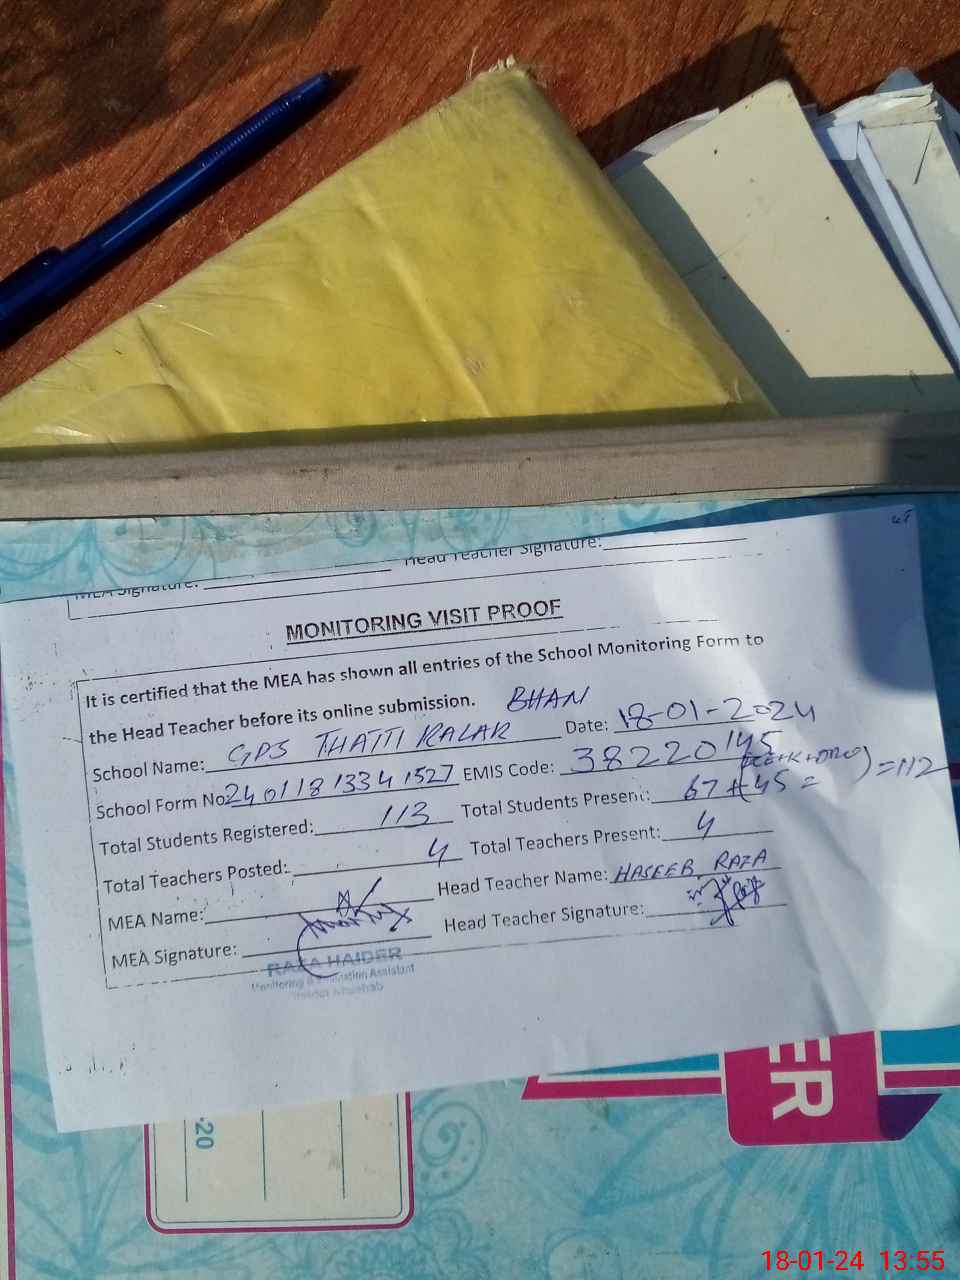 MEA Signature: Head Teacher Signature:
MONITORING VISIT PROOF
It is certified that the MEA has shown all entries of the School Monitoring Form to
the Head Teacher before its online submission.
School Name: GPS THATTI KALAR BHAN Date: 18-01-2024
School Form No: 2401181334 1527 EMIS Code: 38220145
Total Students Registered: 113 Total Students Present: 67+45= =112
Total Teachers Posted: 4 Total Teachers Present: 4
MEA Name: Head Teacher Name: HASEEB RAZA
MEA Signature: Head Teacher Signature:
RAZA HAIDER
Monitoring & Assistant
ER
-20
18-01-24 13:55